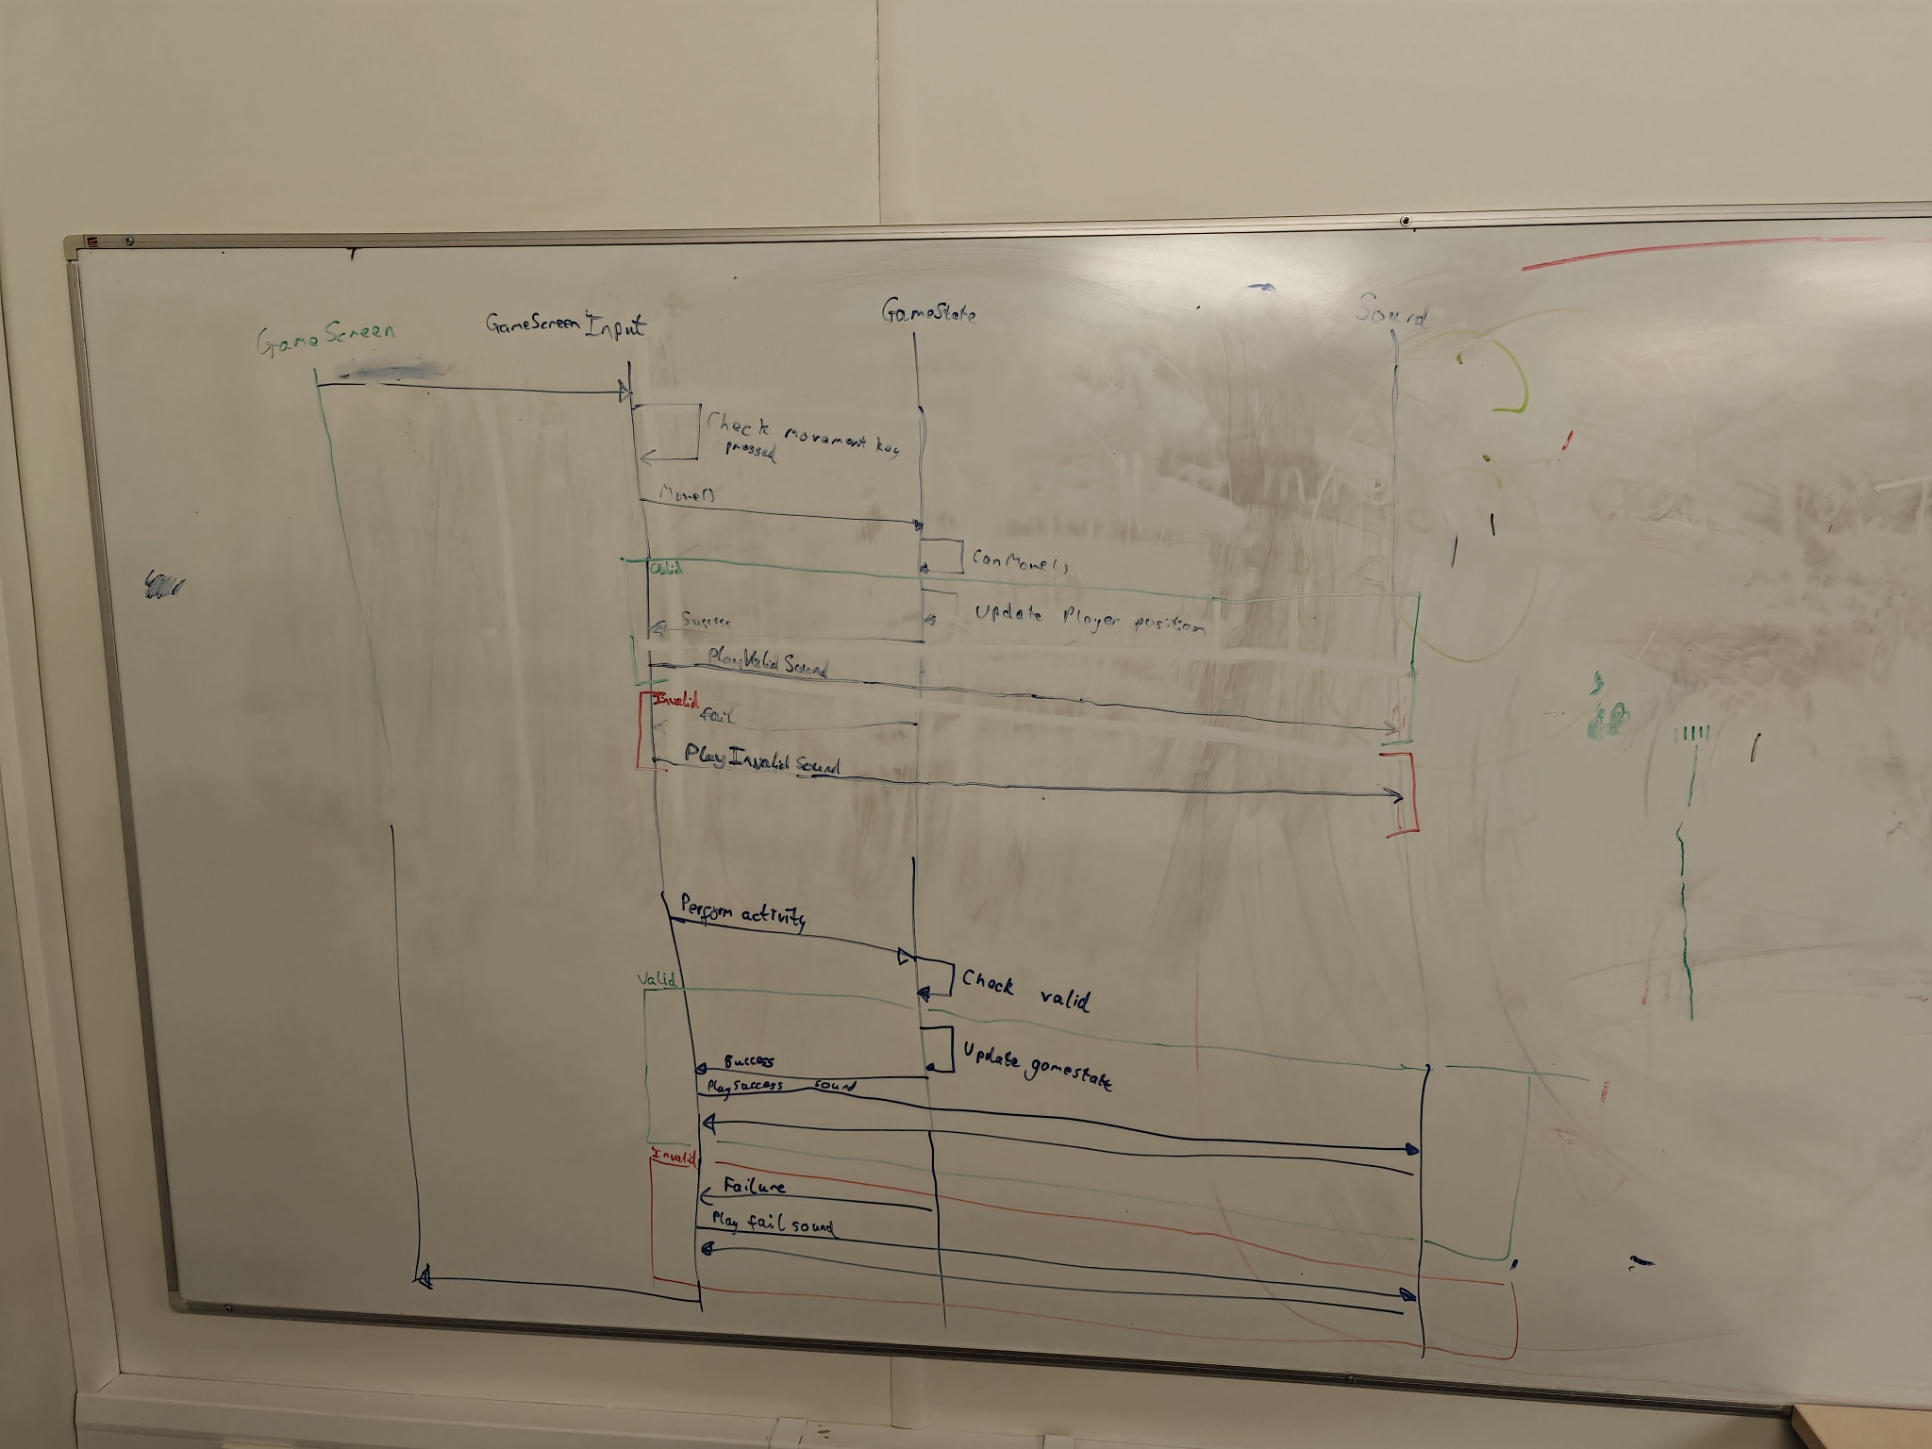 GameScreen
GameScreenInput
GameState
Sound
Check movement key
pressed
Move()
CanMove()
Valid
Update Player position
Success
PlayValidSound
Invalid
fail
PlayInvalidSound
Perform activity
Check valid
Valid
Update gamestate
Success
Play Success sound
Invalid
Failure
Play fail sound